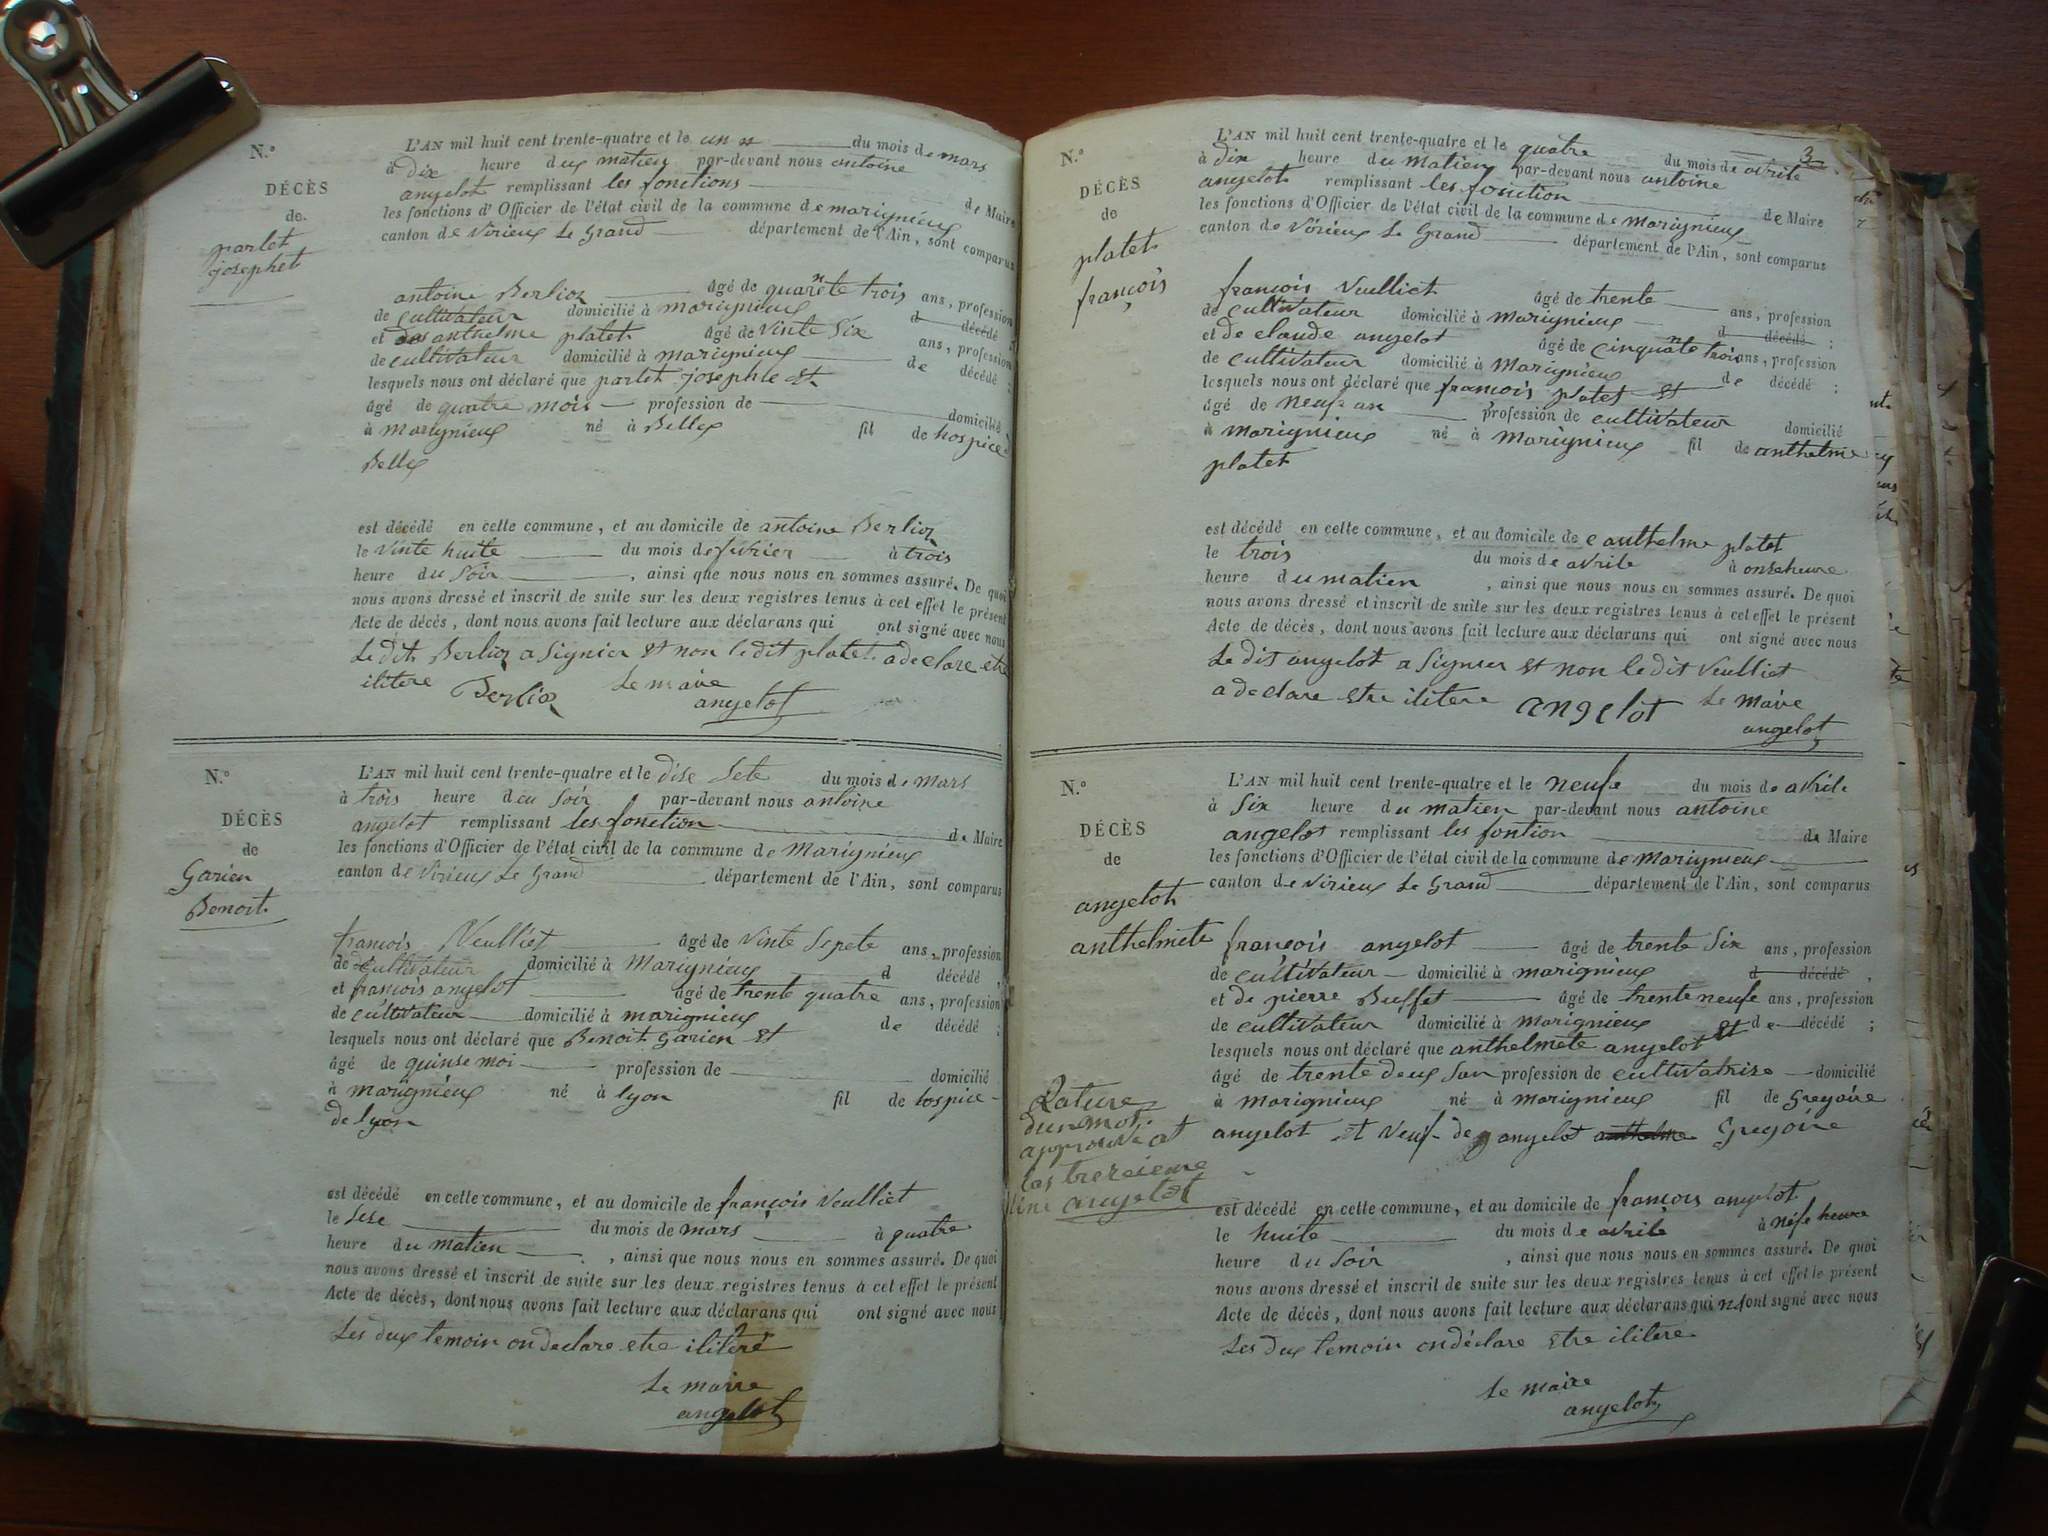 N.°
DÉCÈS
de
parlet
josephet
L'AN mil huit cent trente-quatre et le un du mois de mars
à dix heure dux matien par-devant nous antoine
angelot remplissant les fonctions de Maire
les fonctions d'Officier de l'état civil de la commune de marignieux
canton de Virieux Le Grand département de l'Ain, sont comparus
antoine Berlioz âgé de quarante trois ans, profession
de cultivateur domicilié à marignieux d décédé
et anthelme platet âgé de vinte six ans, profession
de cultivateur domicilié à marignieux de décédé ;
lesquels nous ont déclaré que parlet josephte et
âgé de quatre mois profession de domicilié
à marignieux né à Belley fil de hospice
Belley
est décédé en cette commune, et au domicile de antoine Berlioz
le vinte huite du mois de fevrier à trois
heure du soir, ainsi que nous nous en sommes assuré. De quoi
nous avons dressé et inscrit de suite sur les deux registres tenus à cet effet le présent
Acte de décès, dont nous avons fait lecture aux déclarans qui ont signé avec nous
Le dit Berlioz a signier et non le dit platet a declare etre
ilitere Berlioz Le maire
angelot
N.°
DÉCÈS
de
Garien
Benoit
L'AN mil huit cent trente-quatre et le dise sete du mois de mars
à trois heure du soir par-devant nous antoine
angelot remplissant les fonction de Maire
les fonctions d'Officier de l'état civil de la commune de Marignieux
canton de Virieux Le Grand département de l'Ain, sont comparus
françois Veulliet âgé de vinte sepete ans, profession
de cultivateur domicilié à Marignieux d décédé,
et françois angelot âgé de trente quatre ans, profession
de cultivateur domicilié à marignieux de décédé ;
lesquels nous ont déclaré que Benoit Garien et
âgé de quinse moi profession de domicilié
à marignieux né à lyon fil de lospice
de lyon
est décédé en cette commune, et au domicile de françois Veulliet
le sese du mois de mars à quatre
heure du matien, ainsi que nous nous en sommes assuré. De quoi
nous avons dressé et inscrit de suite sur les deux registres tenus à cet effet le présent
Acte de décès, dont nous avons fait lecture aux déclarans qui ont signé avec nous
Les dux temoin on declare etre ilitere
Le maire
angelot
3
N.°
DÉCÈS
de
platet
françois
L'AN mil huit cent trente-quatre et le quatre du mois de avrile
à dix heure du matien par-devant nous antoine
angelot remplissant les fonction de Maire
les fonctions d'Officier de l'état civil de la commune de Marignieux
canton de Virieux Le Grand département de l'Ain, sont comparus
françois Veulliet âgé de trente ans, profession
de cultivateur domicilié à marignieux d décédé ;
et de claude angelot âgé de cinquante trois ans, profession
de cultivateur domicilié à Marignieux de décédé :
lesquels nous ont déclaré que françois platet et
âgé de neufe an profession de cultivateur domicilié
à marignieux né à Marignieux fil de anthelme
platet
est décédé en cette commune, et au domicile de anthelme platet
le trois du mois de avrile à onse heure
heure du matien, ainsi que nous nous en sommes assuré. De quoi
nous avons dressé et inscrit de suite sur les deux registres tenus à cet effet le présent
Acte de décès, dont nous avons fait lecture aux déclarans qui ont signé avec nous
Le dit angelot a signier et non le dit Veulliet
a declare etre ilitere angelot Le maire
angelot
N.°
DÉCÈS
de
angelot
anthelmete
L'AN mil huit cent trente-quatre et le neufe du mois de avrile
à six heure du matien par-devant nous antoine
angelot remplissant les fontion de Maire
les fonctions d'Officier de l'état civil de la commune de Marignieux
canton de Virieux Le Grand département de l'Ain, sont comparus
françois angelot âgé de trente six ans, profession
de cultivateur domicilié à marignieux d décédé,
et de pierre Buffet âgé de trente neufe ans, profession
de cultivateur domicilié à marignieux de décédé ;
lesquels nous ont déclaré que anthelmete angelot et
âgé de trente deux san profession de cultivatrise domicilié
à marignieux né à marignieux fil de Gregoire
angelot et veuf de angelot anthelme Gregoire
Rature
dun mot
approuve at
las trezieme
line angelot
est décédé en cette commune, et au domicile de françois angelot
le huite du mois de avrile à néfe heure
heure du soir, ainsi que nous nous en sommes assuré. De quoi
nous avons dressé et inscrit de suite sur les deux registres tenus à cet effet le présent
Acte de décès, dont nous avons fait lecture aux déclarans qui ont signé avec nous
Les dux temoin on déclare etre ilitere
Le maire
angelot